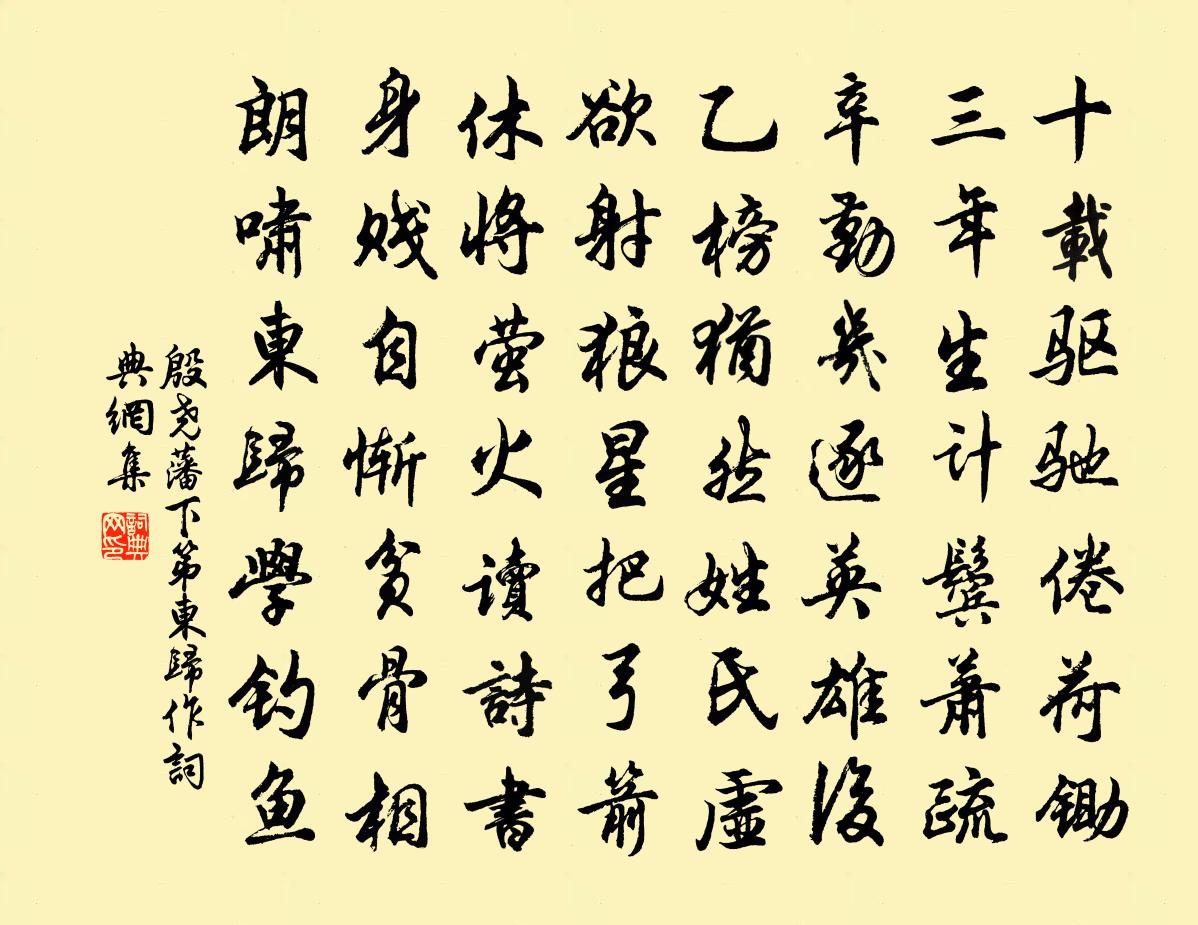 十載驱驰倦荷锄
三年生计鬓萧疏
辛勤几逐英雄後
乙榜猶然姓氏虛
欲射狼星把弓箭
休將萤火讀詩書
身贱自惭贫骨相
朗嘯東歸學钓鱼
殷尧藩下第東歸作詞
典網集
詞典